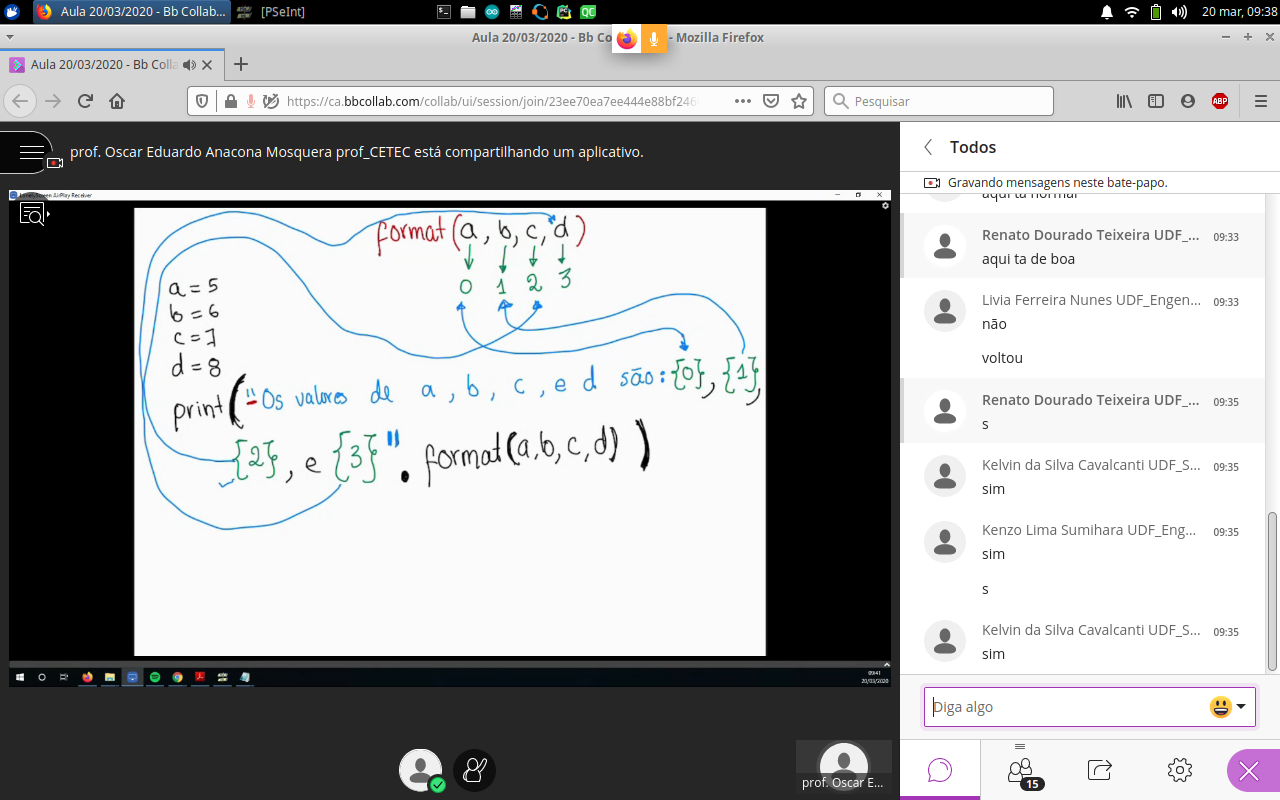 Aula 20/03/2020 - Bb Collab...
[PSeInt]
20 mar, 09:38
Aula 20/03/2020 - Bb Co - Mozilla Firefox
Aula 20/03/2020 - Bb Colla
https://ca.bbcollab.com/collab/ui/session/join/23ee70ea7ee444e88bf246
Pesquisar
ABP
prof. Oscar Eduardo Anacona Mosquera prof_CETEC está compartilhando um aplicativo.
AirPlay Receiver
format(a, b, c, d)
0 1 2 3
a = 5
b = 6
c = 7
d = 8
print("Os valores de a, b, c, e d são: {0}, {1},
{2}, e {3}". format(a,b,c,d))
09:41
20/03/2020
prof. Oscar E...
Todos
Gravando mensagens neste bate-papo.
aqui ta normal
Renato Dourado Teixeira UDF_... 09:33
aqui ta de boa
Livia Ferreira Nunes UDF_Engen... 09:33
não
voltou
Renato Dourado Teixeira UDF_... 09:35
s
Kelvin da Silva Cavalcanti UDF_S... 09:35
sim
Kenzo Lima Sumihara UDF_Eng... 09:35
sim
s
Kelvin da Silva Cavalcanti UDF_S... 09:35
sim
Diga algo
15